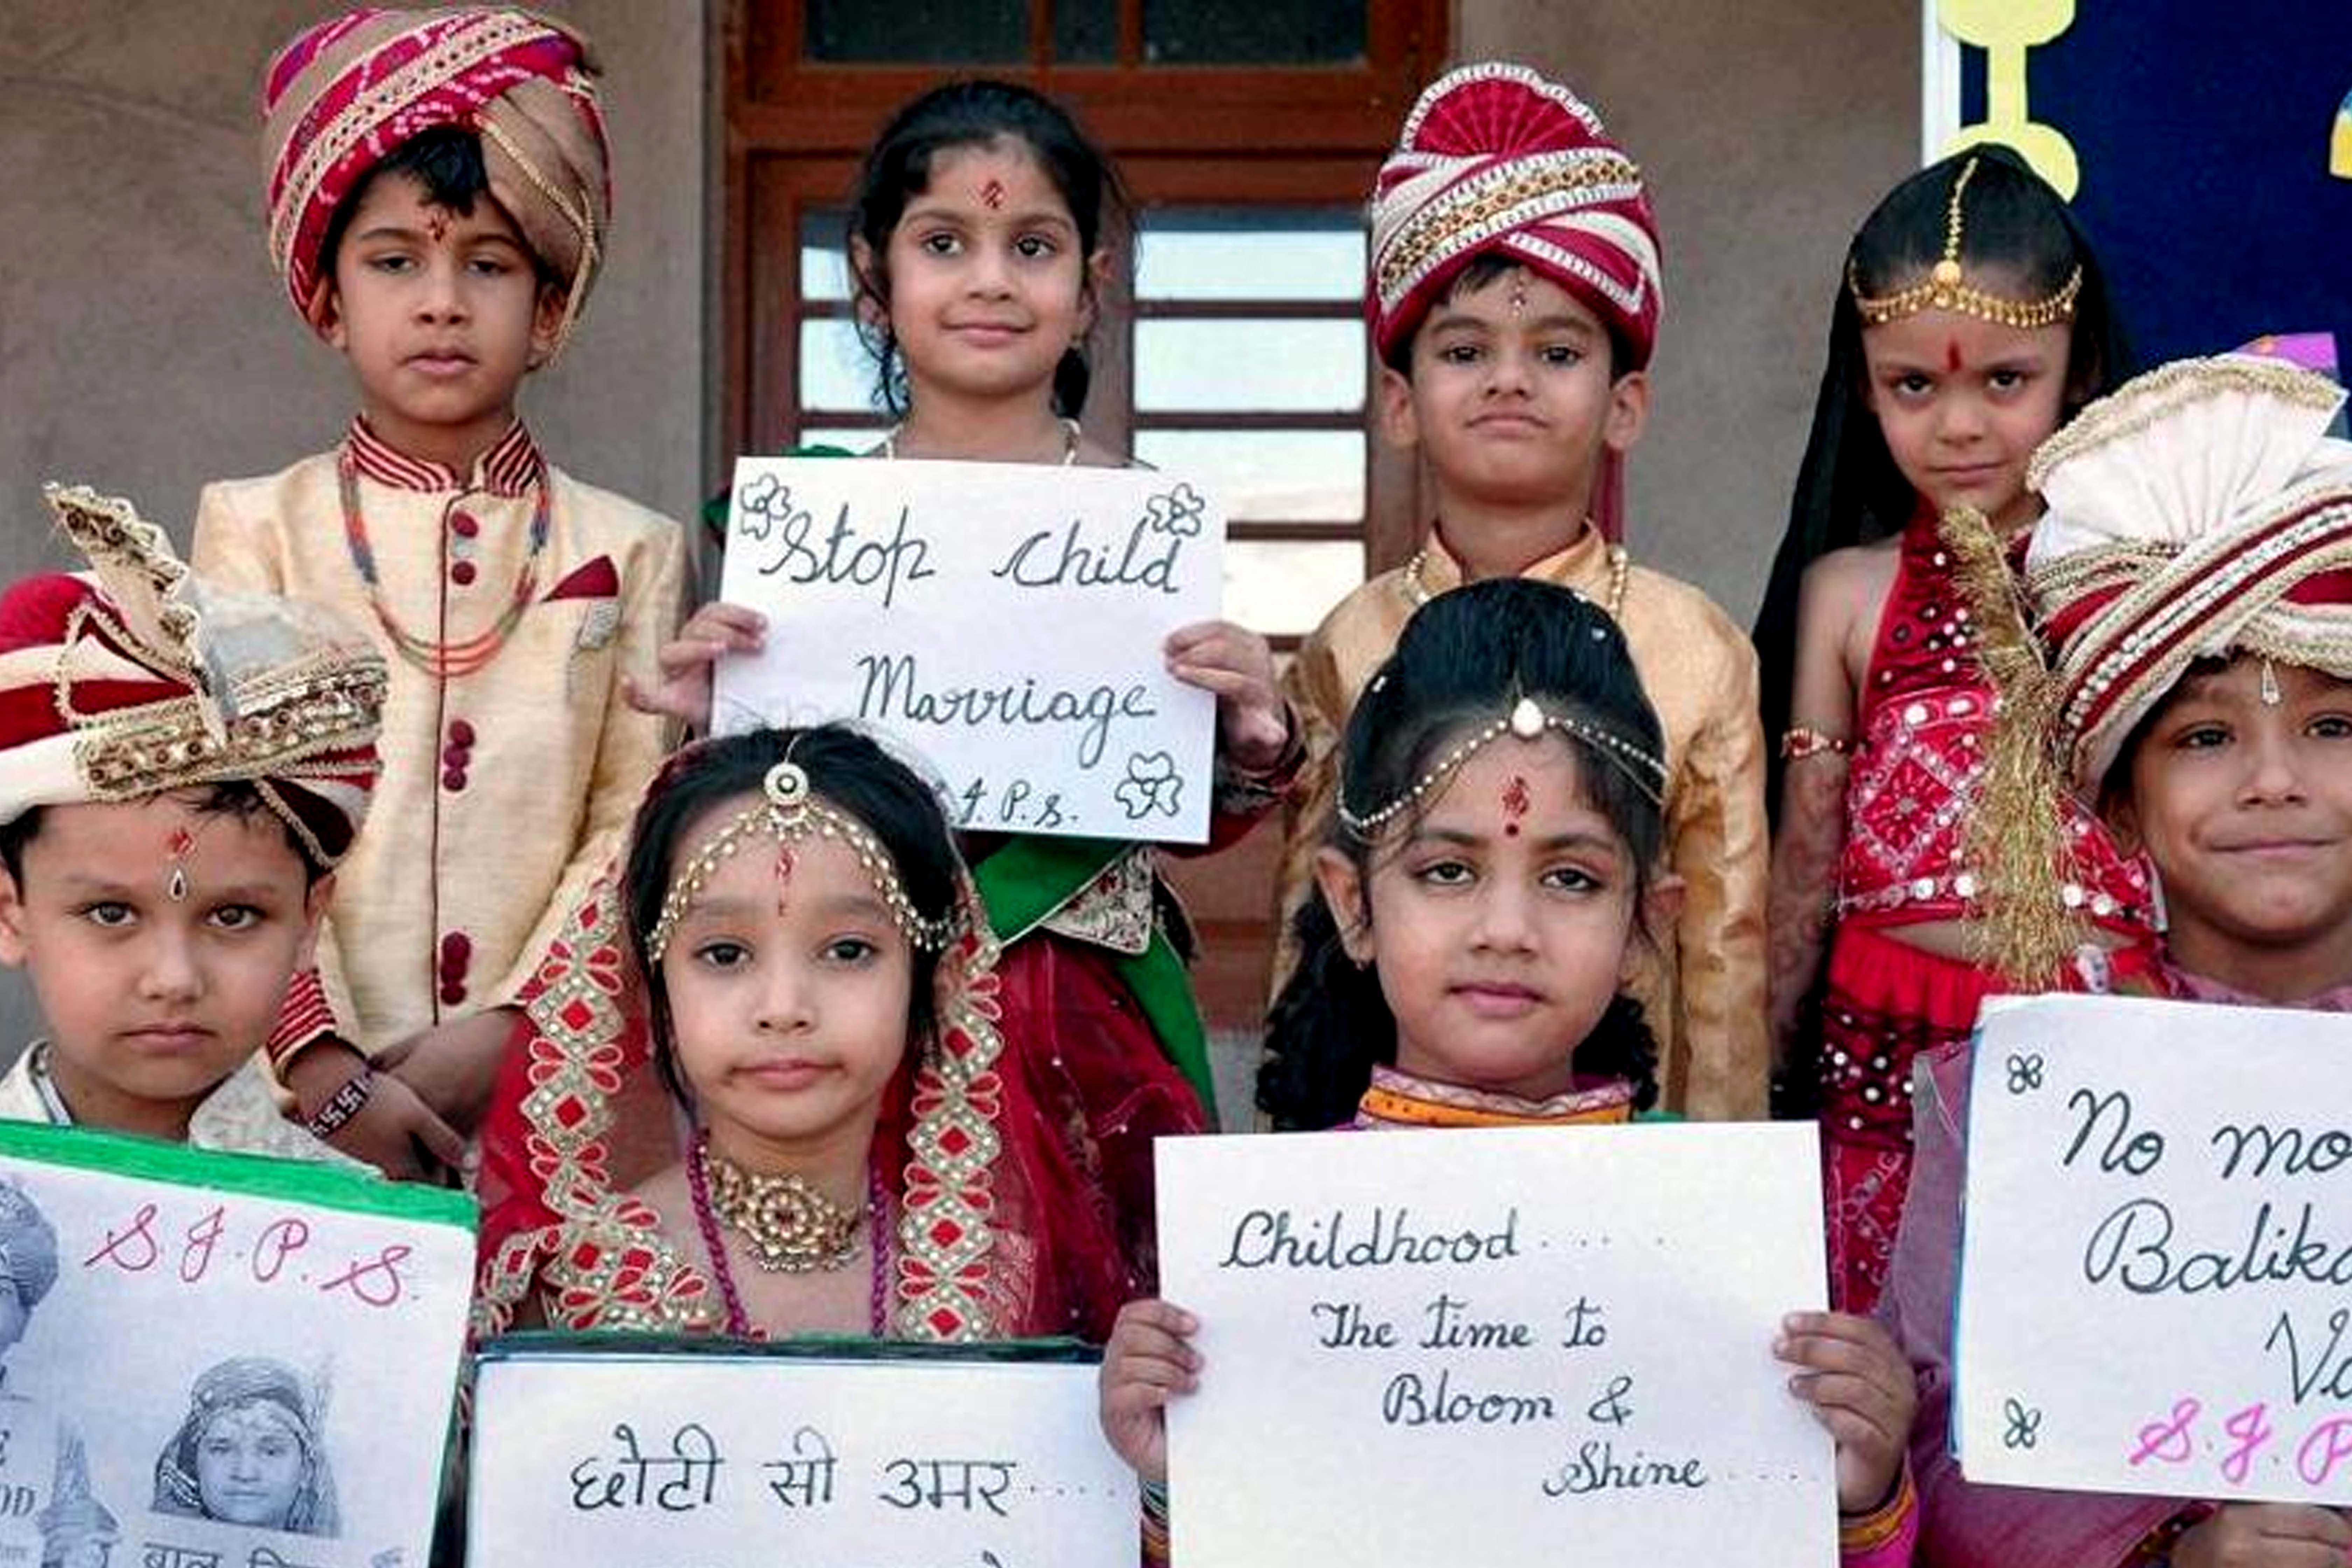 Stop Child
Marriage
J. P. S.
S. J. P. S.
बाल
छोटी सी उमर....
Childhood.....
The time to
Bloom &
Shine.....
No
S. J. P